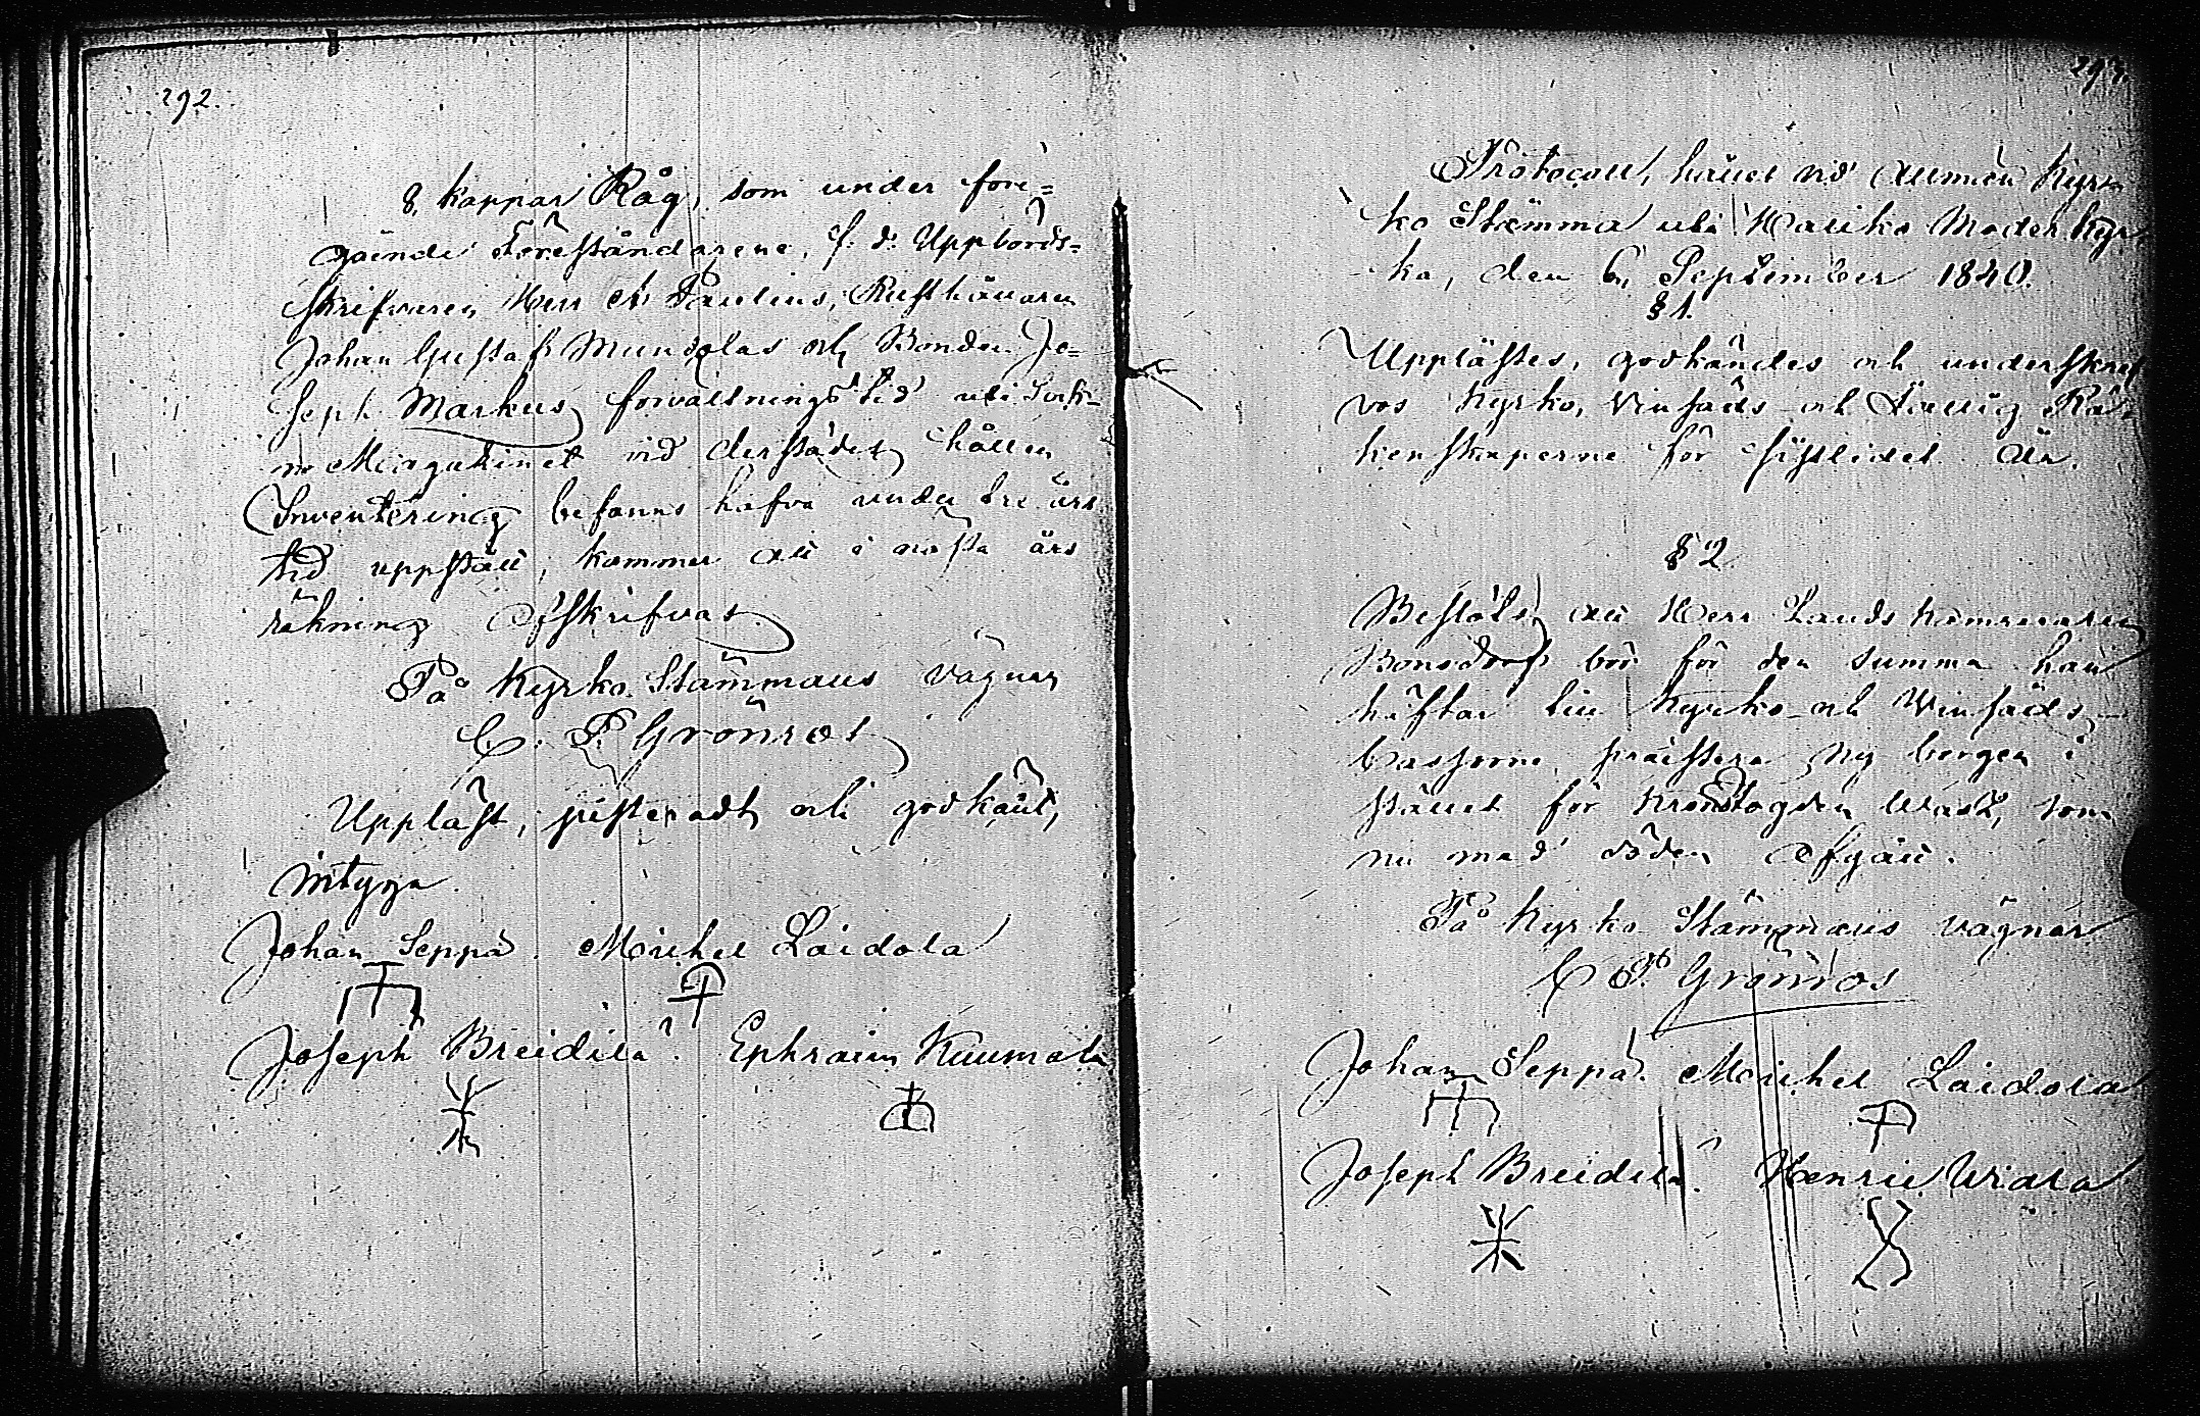 292.
8. kappar Råg, som under fore=
gående Föreståndarene, f. d. Uppbörds=
skrifvaren Herr A Paulins, Rusthållaren
Johan Gustaf Mundolas och Bonden Jo=
seph Markus forvaltningstid uti Sock-
ne Magazinet vid derstädes hållen
Inventering befanns hafva under tre års
tid uppstått, kommer att i nästa års
räkning Afskrifvas
På Kyrko Stämmans vägnar
C. P. Grönroos
Uppläst, justeradt och godkänt,
intyga
Johan Seppä. Michel Laidola
Joseph Breidila. Ephraim Kuumola
293.
Protocoll, hållet vid Allmän Kyr=
ko Stämma uti Halikko Moder Kyr
ka, den 6. September 1840.
§ 1.
Upplästes, godkändes och underskref
vos Kyrko, Vinsäds och Fattig Rä
kenskaperne för sistlidet År.
§ 2
Beslöts, att Herr Lands Kamreraren
Bonsdorff bör för den summa han
häftar till Kyrko och Vinsäds
Cassorne præstera ny borgen i
stället för Kronofogden Wast, som
nu med döden Afgått.
På Kyrko Stämmans vägnar
C P. Grönroos
Johan Seppä. Michel Laidola
Joseph Breidila. Henric Wiala